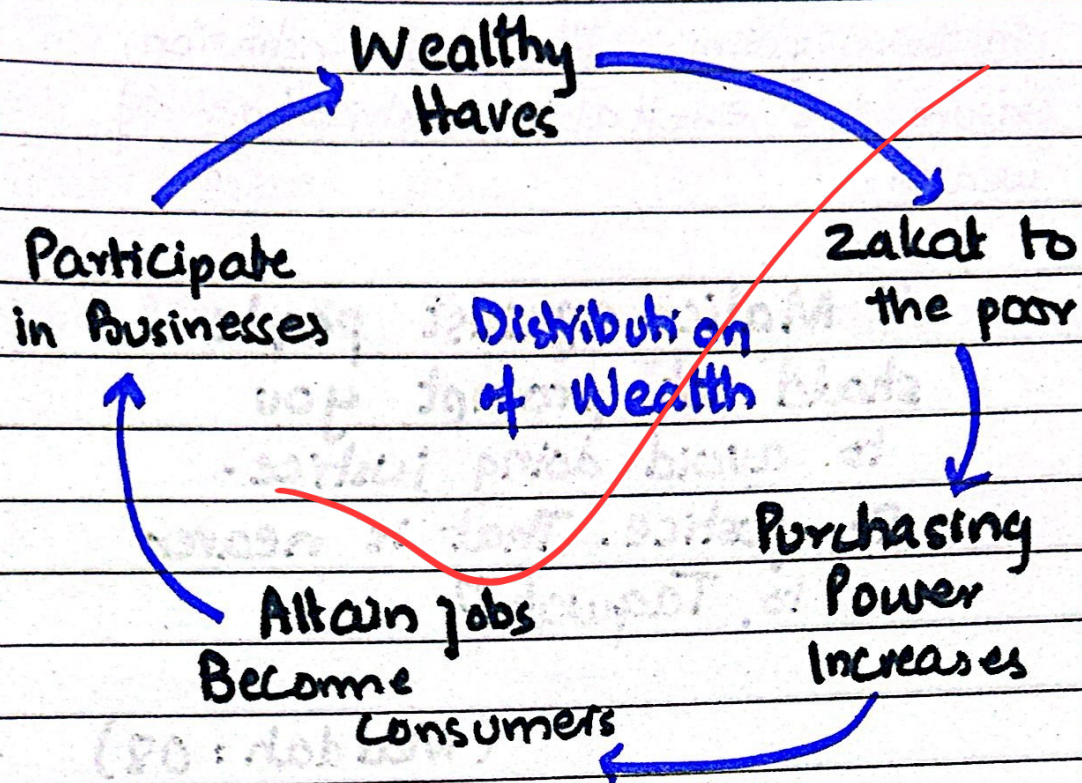 Wealthy
Haves
Zakat to
the poor
Purchasing
Power
Increases
Attain jobs
Become
consumers
Participate
in Businesses
Distribution
of Wealth